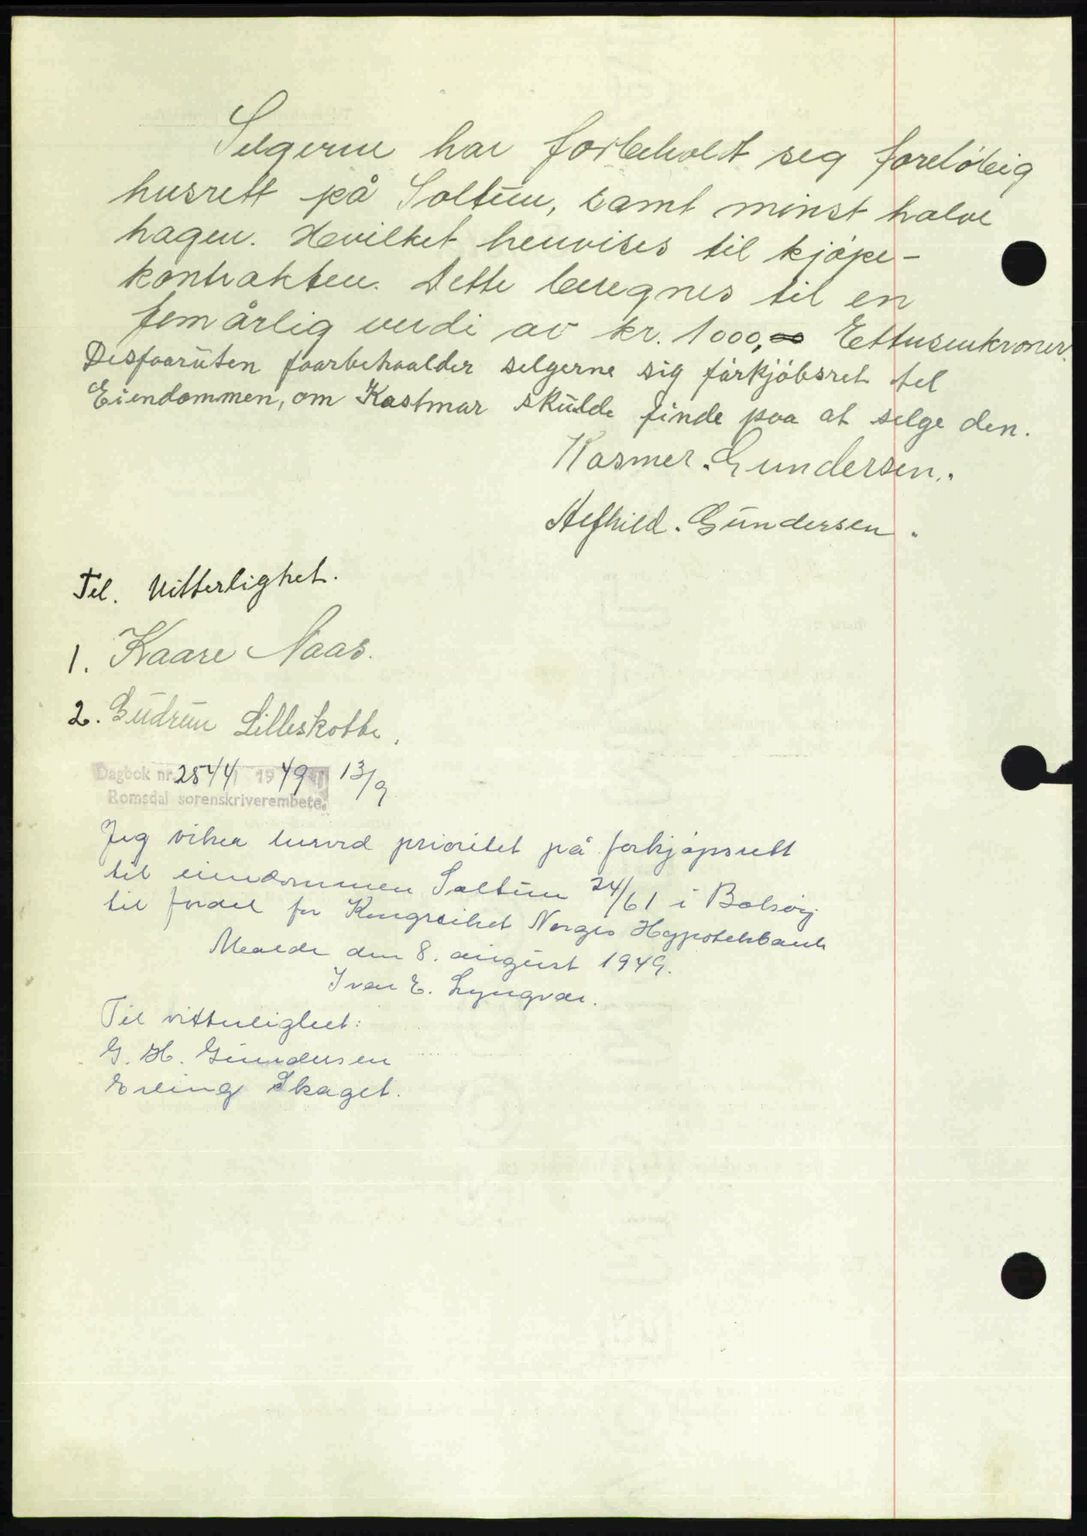 Selgerne har forbeholdt seg foreløbig
husrett på Soltun, samt minst halve
hagen. Hvilket henvises til kjøpe-
kontrakten. Dette beregnes til en
femårlig verdi av kr. 1000,00 Ettusenkroner.
Desforuten foarbehoalder selgerne sig førkjöbsret tel
Eiendommen, om Kastmar skulde finde paa at selge den.
Kosmer. Gundersen.
Alfhild. Gundersen.
Til. Vitterlighet.
1. Kaare Naas.
2. Gudrun Lilleskotte.
Dagbok nr. 2544 1949 13/9
Romsdal sorenskriverembete
Jeg viker herved prioritet på forkjøpsrett
til eiendommen Soltun 24/61 i Bolsøy
til fordel for Kongeriket Norges Hypotekbank
Molde den 8. august 1949.
Ivar E. Lyngvær.
Til vitterlighet:
G. H. Gundersen
Erling Skaget.